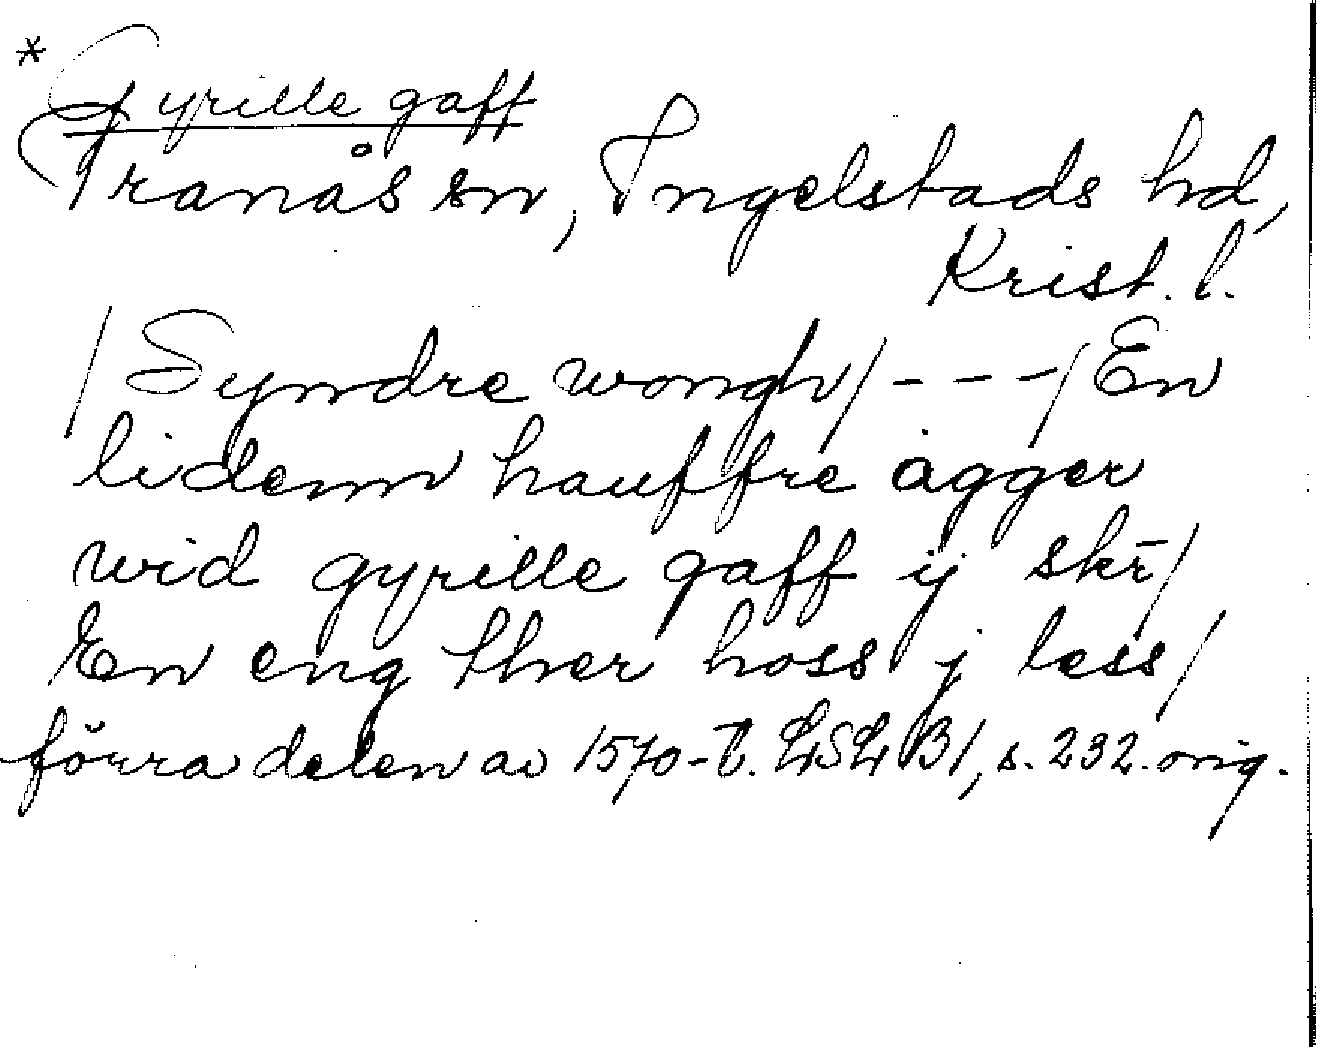 * Gyrille gaff
Tranås sn, Ingelstads hd,
Krist. l.
/Syndre wongh/ - - - /En
lidenn hauffre ager
wid gyrille gaff ij skr̄/
En eng ther hoss j less/
förra delen av 1570-t. LSL B1, s. 232. orig.